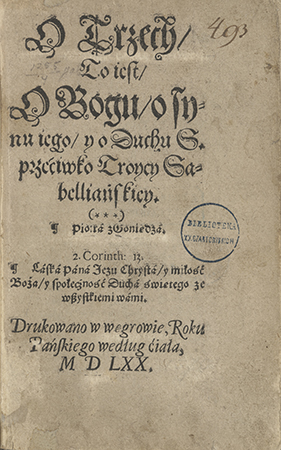 493
O Trzech/
To iest/
O Bogu/ o sy-
nu iego/ y o Duchu S.
przećiwko Troycy Sa-
belliańskiey.
(⁎⁎⁎)
¶ Piotra z Goniedza.
2. Corinth: 13.
¶ Łáská Páná Jezu Chrystá/ y miłość
Boża/ y społeczność Duchá świętego ze
wszystkiemi wámi.
Drukowano w węgrowie, Roku
Pańskiego według ćiáłá,
M D LXX.
BIBLIOTEKA